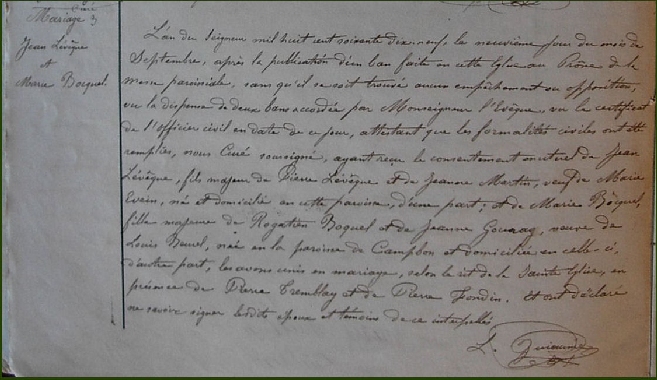 Curé
Mariage 3
Jean Lévêque
et
Marie Bocquel.
L'an du Seigneur mil huit cent soixante dix neuf, le neuvième jour du mois de
Septembre, après la publication d'un ban faite en cette Eglise au Prône de la
messe paroissiale, sans qu'il se soit trouvé aucun empêchement ou opposition,
vu la dispense de deux bans accordée par Monseigneur l'Evêque, vu le certificat
de l'Officier civil en date de ce jour, attestant que les formalités civiles ont été
remplies, nous Curé soussigné, ayant reçu le consentement mutuel de Jean
Lévêque, fils majeur de Pierre Lévêque et de Jeanne Martin, veuf de Marie
Evain, né et domicilié en cette paroisse, d'une part; et de Marie Bocquel,
fille majeure de Rogatien Boquel et de Jeanne veuve de
Louis née en la paroisse de Campbon et domiciliée en celle-ci,
d'autre part, les avons unis en mariage, selon le rit de la Sainte Eglise, en
présence de Pierre Tremblay et de Pierre Fondin. Et ont déclaré
ne savoir signer lesdits époux et témoins de ce interpellés
L.